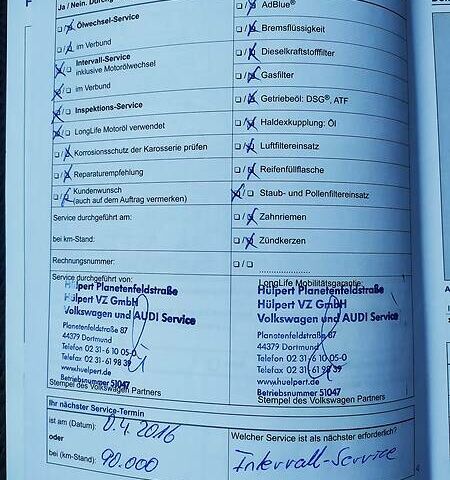 Ja / Nein.
Ölwechsel-Service
im Verbund
Intervall-Service
inklusive Motorölwechsel
im Verbund
Inspektions-Service
LongLife Motoröl verwendet
Korrosionsschutz der Karosserie prüfen
Reparaturempfehlung
Kundenwunsch
(auch auf dem Auftrag vermerken)
Service durchgeführt am:
bei km-Stand:
Rechnungsnummer:
Service durchgeführt von:
Hülpert Planetenfeldstraße
Hülpert VZ GmbH
Volkswagen und AUDI Service
Planetenfeldstraße 87
44379 Dortmund
Telefon 02 31-6 10 05-0
Telefax 02 31-61 98 39
www.huelpert.de
Betriebsnummer 51047
Stempel des Volkswagen Partners
AdBlue®
Bremsflüssigkeit
Dieselkraftstofffilter
Gasfilter
Getriebeöl: DSG®, ATF
Haldexkupplung: Öl
Luftfiltereinsatz
Reifenfüllflasche
Staub- und Pollenfiltereinsatz
Zahnriemen
Zündkerzen
LongLife Mobilitätsgarantie:
Hülpert Planetenfeldstraße
Hülpert VZ GmbH
Volkswagen und AUDI Service
Planetenfeldstraße 87
44379 Dortmund
Telefon 02 31-6 10 05-0
Telefax 02 31-61 98 39
www.huelpert.de
Betriebsnummer 51047
Stempel des Volkswagen Partners
Ihr nächster Service-Termin
ist am (Datum): 0.4.2016
oder
bei (km-Stand): 90.000
Welcher Service ist als nächster erforderlich?
Intervall-Service